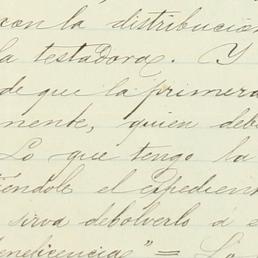 con la distribucion
la testadora. Y
de que la primera
nente, quien deb
Lo que tengo la
iéndole el expedient
sirva debolverlo á e
eneficencia" = Lo